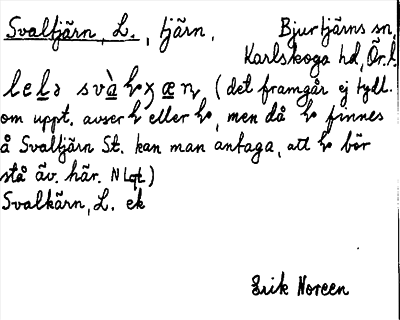 Svaltjärn, L., tjärn, Bjurtjärns sn,
Karlskoga hd, Ör. l.
(det framgår ej tydl.
om uppt. avser eller , men då finnes
å Svaltjärn St. kan man antaga, att bör
stå äv. här. NLqt.)
Svalkärn, L. ek
Erik Noreen